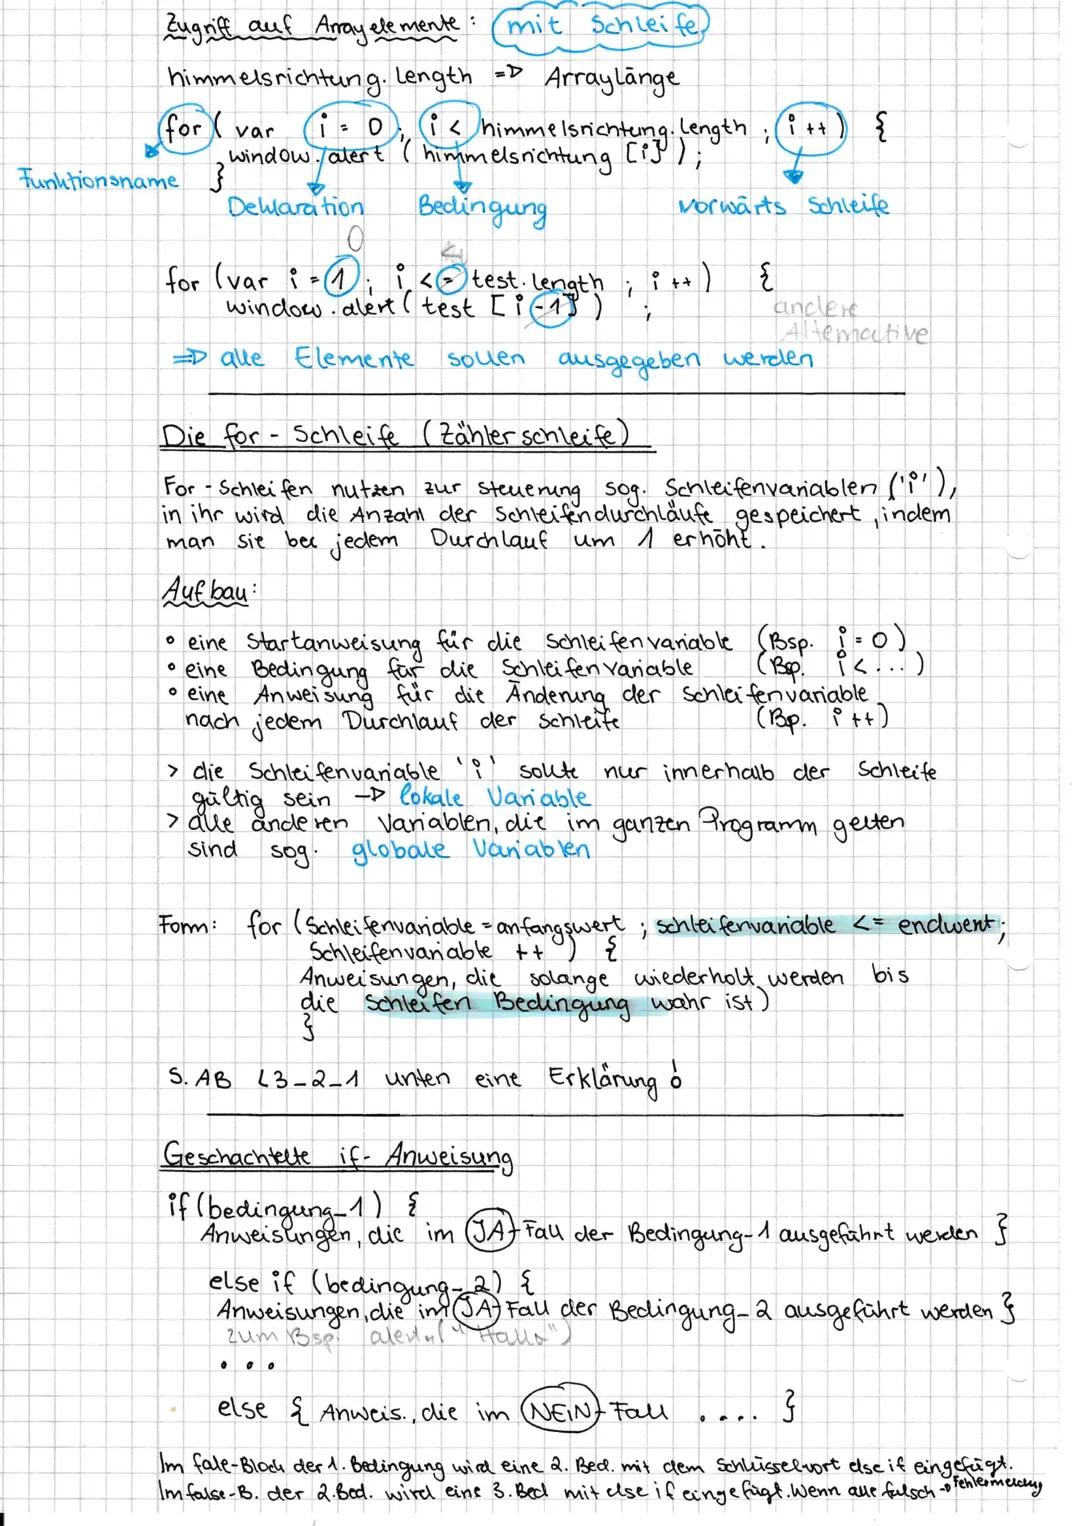 Zugriff auf Arrayelemente : mit Schleife
himmelsrichtung.length => Arraylänge
for ( var i = 0 ; i < himmelsrichtung.length ; i ++ ) {
window.alert ( himmelsrichtung [i] ) ;
}
Funktionsname
Deklaration Bedingung vorwärts Schleife
0
for (var i = 1 ; i <= test.length ; i ++ ) {
window.alert ( test [ i -1] ) ;
andere
Alternative
=> alle Elemente sollen ausgegeben werden
Die for - Schleife (Zählerschleife)
For - Schleifen nutzen zur steuerung sog. Schleifenvariablen ('i'),
in ihr wird die Anzahl der Schleifendurchläufe gespeichert, indem
man sie bei jedem Durchlauf um 1 erhöht.
Aufbau:
• eine Startanweisung für die Schleifenvariable (Bsp. i = 0)
• eine Bedingung für die Schleifenvariable (Bsp. i < ... )
• eine Anweisung für die Änderung der Schleifenvariable
nach jedem Durchlauf der Schleife (Bp. i ++)
> die Schleifenvariable 'i' sollte nur innerhalb der Schleife
gültig sein -> lokale Variable
> alle anderen Variablen, die im ganzen Programm gelten
sind sog. globale Variablen
Form: for (Schleifenvariable = anfangswert ; schleifenvariable <= endwert ;
Schleifenvariable ++ ) {
Anweisungen, die solange wiederholt werden bis
die Schleifen Bedingung wahr ist)
}
S. AB L3_2_1 unten eine Erklärung !
Geschachtelte if- Anweisung
if (bedingung_1) {
Anweisungen, die im JA-Fall der Bedingung-1 ausgeführt werden }
else if (bedingung_2) {
Anweisungen, die im JA-Fall der Bedingung_2 ausgeführt werden }
zum Bsp. alert ("Hallo")
• • •
else { Anweis., die im NEIN-Fall .... }
Im false-Block der 1. Bedingung wird eine 2. Bed. mit dem Schlüsselwort else if eingefügt.
Im false-B. der 2.Bed. wird eine 3. Bed mit else if eingefügt. Wenn alle falsch -> Fehlermeldung